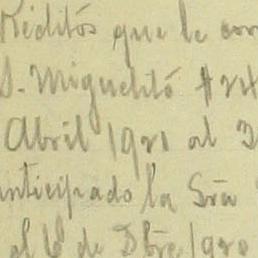 Réditos que le
S. Miguelitó #
Abril 1921 al 3
anticipado la Sra
al 6 de Dbre/920